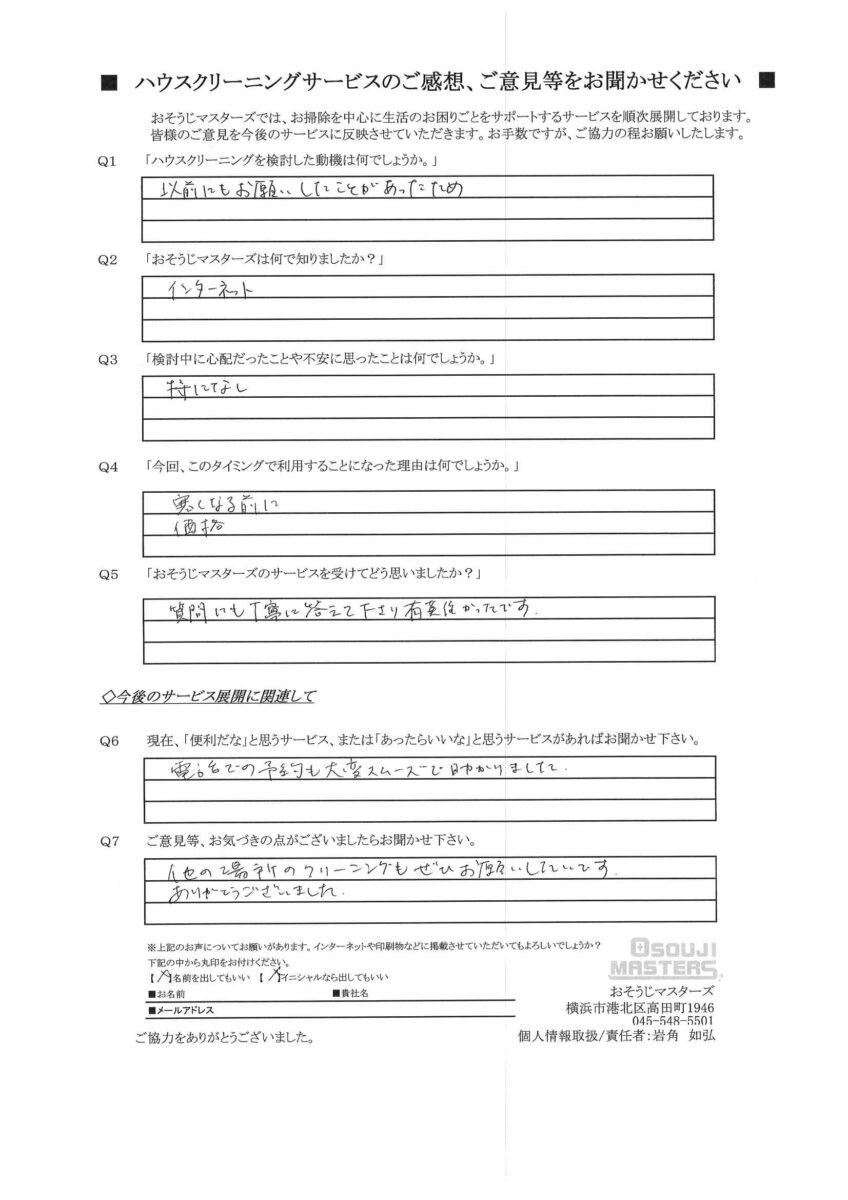 ■ ハウスクリーニングサービスのご感想、ご意見等をお聞かせください ■
おそうじマスターズでは、お掃除を中心に生活のお困りごとをサポートするサービスを順次展開しております。
皆様のご意見を今後のサービスに反映させていただきます。お手数ですが、ご協力の程お願いしたします。
Q1 「ハウスクリーニングを検討した動機は何でしょうか。」
以前にもお願いしたことがあったため
Q2 「おそうじマスターズは何で知りましたか？」
インターネット
Q3 「検討中に心配だったことや不安に思ったことは何でしょうか。」
特になし
Q4 「今回、このタイミングで利用することになった理由は何でしょうか。」
寒くなる前に
価格
Q5 「おそうじマスターズのサービスを受けてどう思いましたか？」
質問にも丁寧に答えて下さり有難かったです.
◇今後のサービス展開に関連して
Q6 現在、「便利だな」と思うサービス、または「あったらいいな」と思うサービスがあればお聞かせ下さい。
電話での予約も大変スムーズで助かりました.
Q7 ご意見等、お気づきの点がございましたらお聞かせ下さい。
他の場所のクリーニングもぜひお願いしたいです.
ありがとうございました.
※上記のお声についてお願いがあります。インターネットや印刷物などに掲載させていただいてもよろしいでしょうか？
下記の中から丸印をお付けください。
【 】名前を出してもいい 【 】イニシャルなら出してもいい
■お名前 ■貴社名
■メールアドレス
ご協力をありがとうございました。
OSOUJI
MASTERS
おそうじマスターズ
横浜市港北区高田町1946
045-548-5501
個人情報取扱/責任者：岩角 如弘